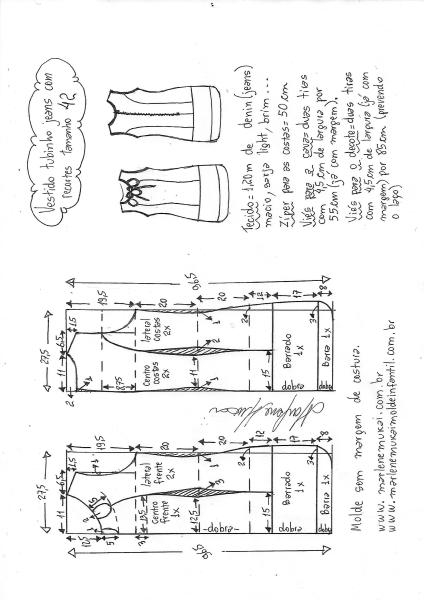 Vestido tubinho jeans com
recortes tamanho 42
Tecido = 1,20m de denin (jeans)
macio, sarja light, brim...
Ziper para as costas = 50 cm
Viés para a cava = duas tiras
com 4,5cm de largura por
55cm (já com margem).
Viés para o decote = duas tiras
com 4,5cm de largura (já com
margem) por 85cm (prevendo
o laço)
27,5
11
6,5
1,5
19,5
20
20
12
17
8
96,0
2
1
8,75
Centro
costas
2x
lateral
costas
2x
11
1
2
1
15
2
3
Barrado
1x
dobra
Barra 1x
dobra
27,5
11
6,5
1,5
19,5
20
20
12
17
8
96,0
12,5
5
3
Centro
frente
1x
lateral
frente
2x
13,5
12,5
3
1
15
2
3
-dobra-
Barrado
1x
dobra
Barra 1x
dobra
Molde sem margem de costura.
www.marlenemukai.com.br
www.marlenemukaimoldeinfantil.com.br